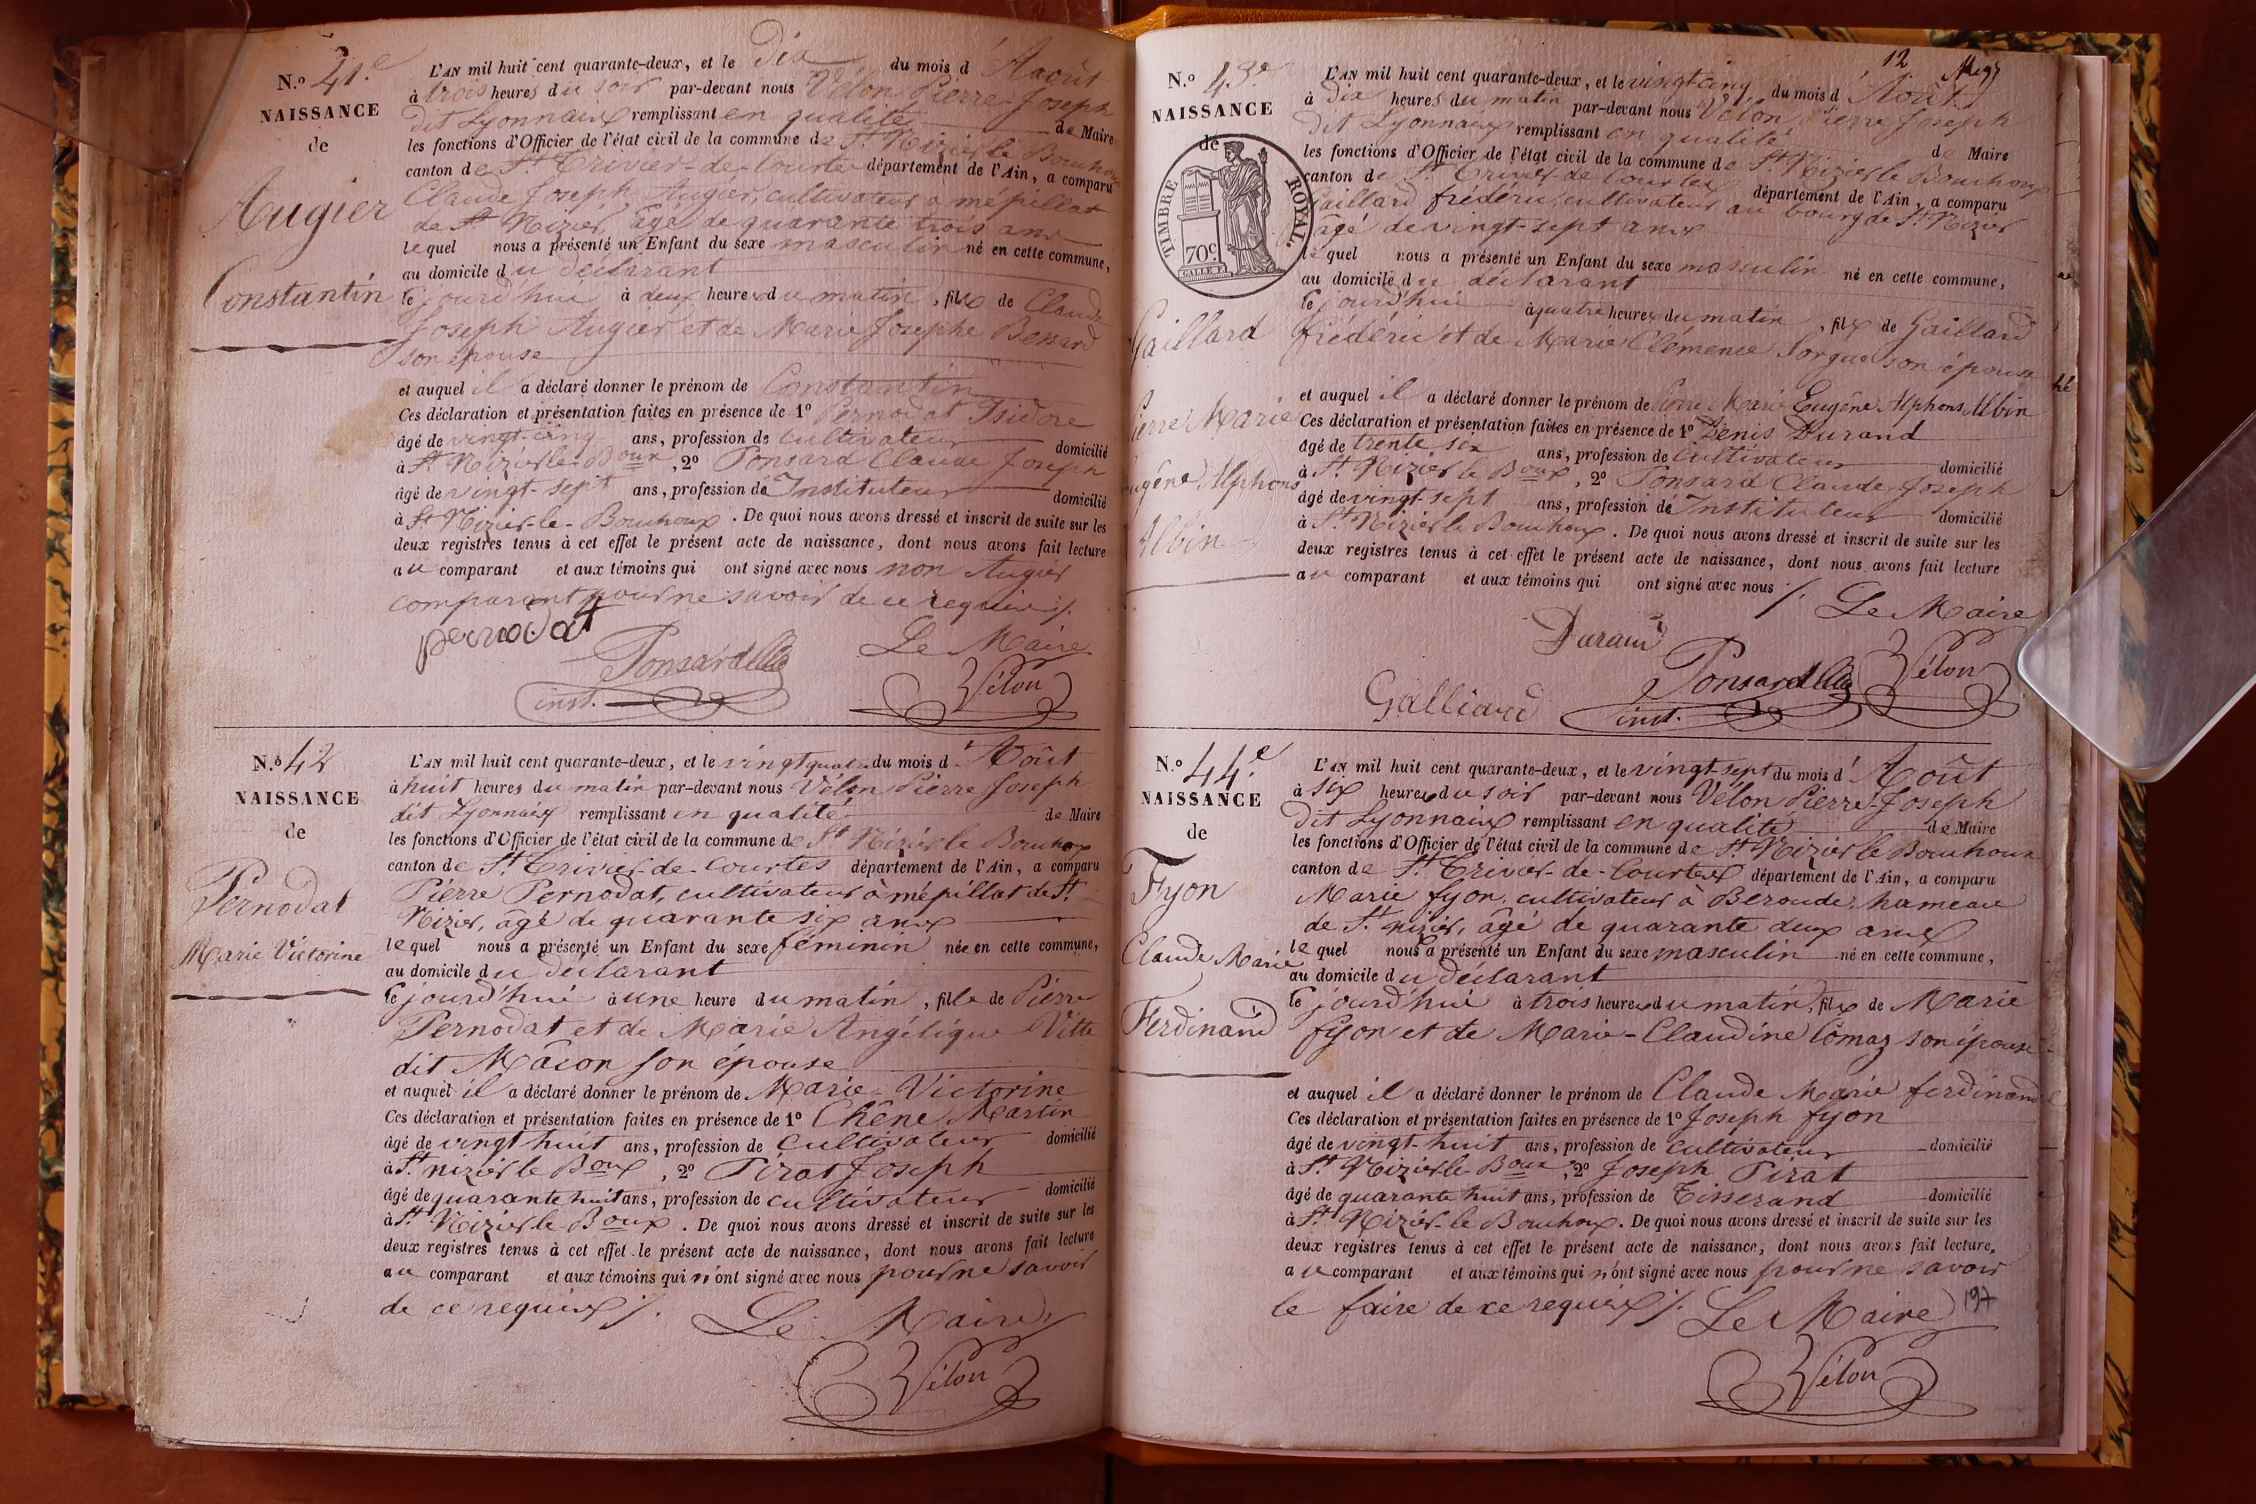 N.o 41.e
NAISSANCE
de
Augier
Constantin
L'AN mil huit cent quarante-deux, et le dix du mois d'Août
à trois heures du soir par-devant nous Vélon Pierre-Joseph
dit Lyonnaix remplissant en qualité de Maire
les fonctions d'Officier de l'état civil de la commune de St. Nizier le Bouchoux
canton de St. Trivier-de-Courtes département de l'Ain, a comparu
Claude Joseph Augier, cultivateur à mépillat
de St Nizier, âgé de quarante trois ans
lequel nous a présenté un Enfant du sexe masculin né en cette commune,
au domicile du déclarant
le jourd'hui à deux heures du matin, fils de Claude
Joseph Augier et de Marie Josephe Benard
son épouse
et auquel il a déclaré donner le prénom de Constantin
Ces déclaration et présentation faites en présence de 1o Pernodat Isidore
âgé de vingt-cinq ans, profession de cultivateur domicilié
à St. Nizier-le-Boux, 2o Ponsard Claude Joseph
âgé de vingt-sept ans, profession de Instituteur domicilié
à St Nizier-le-Bouchoux. De quoi nous avons dressé et inscrit de suite sur les
deux registres tenus à cet effet le présent acte de naissance, dont nous avons fait lecture
au comparant et aux témoins qui ont signé avec nous non Augier
comparant pour ne savoir de ce requis ./.
pernodat
Ponsard Cl
inst.
Le Maire
Vélon
N.o 42
NAISSANCE
de
Pernodat
Marie Victorine
L'AN mil huit cent quarante-deux, et le vingt quatre du mois d'Août
à huit heures du matin par-devant nous Vélon Pierre Joseph
dit Lyonnaix remplissant en qualité de Maire
les fonctions d'Officier de l'état civil de la commune de St Nizier le Bouchoux
canton de St. Trivier-de-Courtes département de l'Ain, a comparu
Pierre Pernodat, cultivateur à mépillat de St.
Nizier, âgé de quarante six ans
lequel nous a présenté un Enfant du sexe féminin née en cette commune,
au domicile du déclarant
le jourd'hui à une heure du matin, fille de Pierre
Pernodat et de Marie Angélique Vitte
dit Mâcon son épouse
et auquel il a déclaré donner le prénom de Marie-Victorine
Ces déclaration et présentation faites en présence de 1o Chêne Martin
âgé de vingt huit ans, profession de cultivateur domicilié
à St. nizier le Boux, 2o Pirat Joseph
âgé de quarante huit ans, profession de cultivateur domicilié
à St. Nizier le Boux. De quoi nous avons dressé et inscrit de suite sur les
deux registres tenus à cet effet le présent acte de naissance, dont nous avons fait lecture
au comparant et aux témoins qui n'ont signé avec nous pour ne savoir
de ce requis ./. Le Maire
Vélon
12
N.o 43.e
NAISSANCE
de
TIMBRE ROYAL.
70c
Gaillard
Pierre Marie
Eugène Alphons
Albin
L'AN mil huit cent quarante-deux, et le vingt cinq du mois d'Août
à dix heures du matin par-devant nous Vélon Pierre Joseph
dit Lyonnaix remplissant en qualité de Maire
les fonctions d'Officier de l'état civil de la commune de St. Nizier le Bouchoux
canton de St. Trivier-de-Courtes département de l'Ain, a comparu
Gaillard frédéric, cultivateur au bourg de St. Nizier
âgé de vingt-sept ans
lequel nous a présenté un Enfant du sexe masculin né en cette commune,
au domicile du déclarant
le jourd'hui à quatre heures du matin, fils de Gaillard
frédéric et de Marie Clémence Sorgue son épouse
et auquel il a déclaré donner le prénom de Pierre Marie Eugène Alphons Albin
Ces déclaration et présentation faites en présence de 1o Denis Durand
âgé de trente six ans, profession de cultivateur domicilié
à St. Nizier le Boux, 2o Ponsard Claude Joseph
âgé de vingt-sept ans, profession de Instituteur domicilié
à St. Nizier le Bouchoux. De quoi nous avons dressé et inscrit de suite sur les
deux registres tenus à cet effet le présent acte de naissance, dont nous avons fait lecture
au comparant et aux témoins qui ont signé avec nous ./.
Le Maire
Durand
Ponsard Cl
Vélon
Galliard
inst.
N.o 44.e
NAISSANCE
de
Fyon
Claude Marie
Ferdinand
L'AN mil huit cent quarante-deux, et le vingt-sept du mois d'Août
à six heures du soir par-devant nous Vélon Pierre-Joseph
dit Lyonnaix remplissant en qualité de Maire
les fonctions d'Officier de l'état civil de la commune de St. Nizier le Bouchoux
canton de St. Trivier-de-Courtes département de l'Ain, a comparu
Marie fyon, cultivateur à Beroude, hameau
de St. nizier, âgé de quarante deux ans
lequel nous a présenté un Enfant du sexe masculin né en cette commune,
au domicile du déclarant
le jourd'hui à trois heures du matin, fils de Marie
fyon et de Marie-Claudine Comaz son épouse
et auquel il a déclaré donner le prénom de Claude Marie ferdinand
Ces déclaration et présentation faites en présence de 1o Joseph fyon
âgé de vingt-huit ans, profession de cultivateur domicilié
à St. Nizier-le-Boux, 2o Joseph Pirat
âgé de quarante huit ans, profession de Tisserand domicilié
à St. Nizier-le Bouchoux. De quoi nous avons dressé et inscrit de suite sur les
deux registres tenus à cet effet le présent acte de naissance, dont nous avons fait lecture,
au comparant et aux témoins qui n'ont signé avec nous pour ne savoir
le faire de ce requis ./. Le Maire
197
Vélon